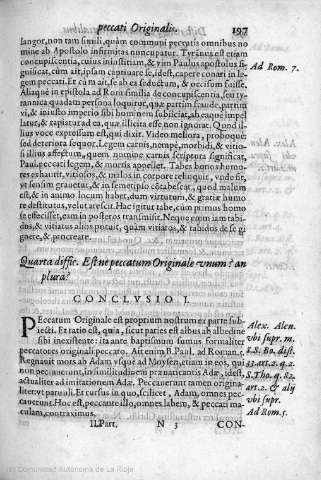 peccati Originalis. 197
languor, non tam simili, quàm communi peccatis omnibus no
mine ab Apostolo infirmitas nuncupatur. Tyrãnus est etiam
concupiscentia, cuius iniustitiam, & vim Paulus apostolus si-
gnificat, cùm ait, ipsam captiuare se, idest, capere conari in le-
gem peccati. Et cùm ait, se ab ea seductum, & occisum fuisse.
Ad Rom. 7.
Aliaq; in epistola ad Rom. similia de concupiscentia, seu ty-
rannica quadam persona loquitur, quæ partim fraude, partim
vi, & iniusto imperio sibi hominem subiiciat, ab eaque impel
latur, & rapiatur ad ea, quæ illicita esse non ignorat. Quod il-
lius voce expressum est, qui dixit. Video meliora, proboque:
sed deteriora sequor. Legem carnis, nempe, morbidi, & vitio-
si illius affectum, quem nomine carnis Scriptura significat,
Paulus vocat legem, & mortis appellet. Tabes bonos humo-
res exhaurit, vitiosos, & malos in corpore relinquit, vnde fit,
vt sensim grauetur, & in semetipso cõtabescat, quod malum
est, & in animo locum habet, dum virtutum, & gratiæ humo
re destitutus, velut arescit. Hac igitur tabe, cùm primus homo
se effecisset, eam in posteros transmisit. Neque enim iam tabi-
dus, & vitiatus alios potuit, quàm vitiatos, & tabidos de se gi
gnere, & procreare.
Quarta diffic. Est ne peccatum Originale vnum? an
plura?
CONCLVSIO I.
PEccatum Originale est proprium nostrum ex parte sub-
iecti. Et ratio est, quia, sicut paries est albus ab albedine
sibi inexistente: ita ante baptismum sumus formaliter
peccatores originali peccato. Ait enim B. Paul. ad Roman. 5.
Regnauit mors ab Adam vsque ad Moysen, etiam in eos, qui
non peccauerunt, in similitudinem præuaricationis Adæ, idest,
actualiter ad imitationem Adæ. Peccauerunt tamen origina-
liter vt paruuli. Et cursus in quo, scilicet, Adam, omnes pec-
cauerunt. Hoc est, peccante illo, omnes labem, & peccati ma-
culam, contraximus.
Alex. Alen.
vbi supr. m.
1. S. Bo. dist.
33. art. 2. q. 2.
S. Tho. q. 82.
art. 2. & alij
vbi supr.
Ad Rom. 5.
II. Part. N 3 CON-
(c) Comunidad Autónoma de La Rioja